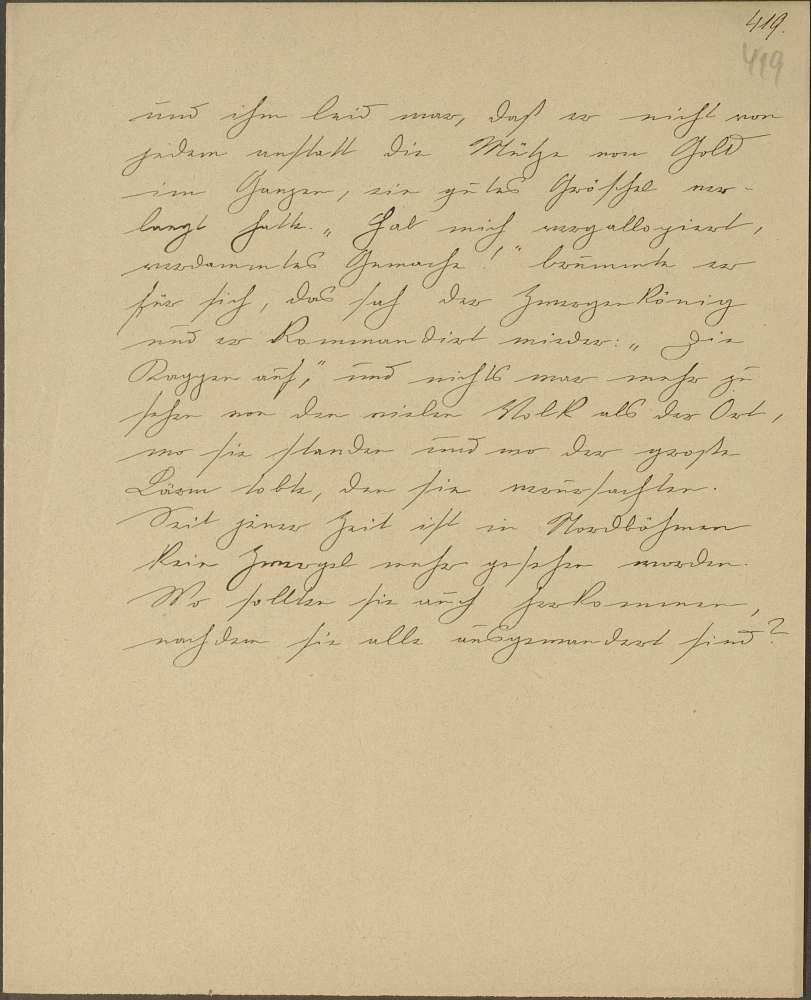 419.
419
und ihm leid war, daß er nicht von
jedem anstatt die Mütze von Gold
im Ganzen, ein gutes Gröschel ver-
langt hatte. „Hab mich vergallopiert,
verdammtes Gemache!" brummte er
für sich, das sah der Zwergenkönig
und er kommandirt wieder: „Die
Kappen auf," und nichts war mehr zu
sehen von den vielen Volk als der Ort,
wo sie standen und wo der große
Lärm tobte, den sie verursachten.
Seit jener Zeit ist in Nordböhmen
kein Zwergel mehr gesehen worden.
Wo sollten sie auch herkommen,
nachdem sie alle ausgewandert sind?